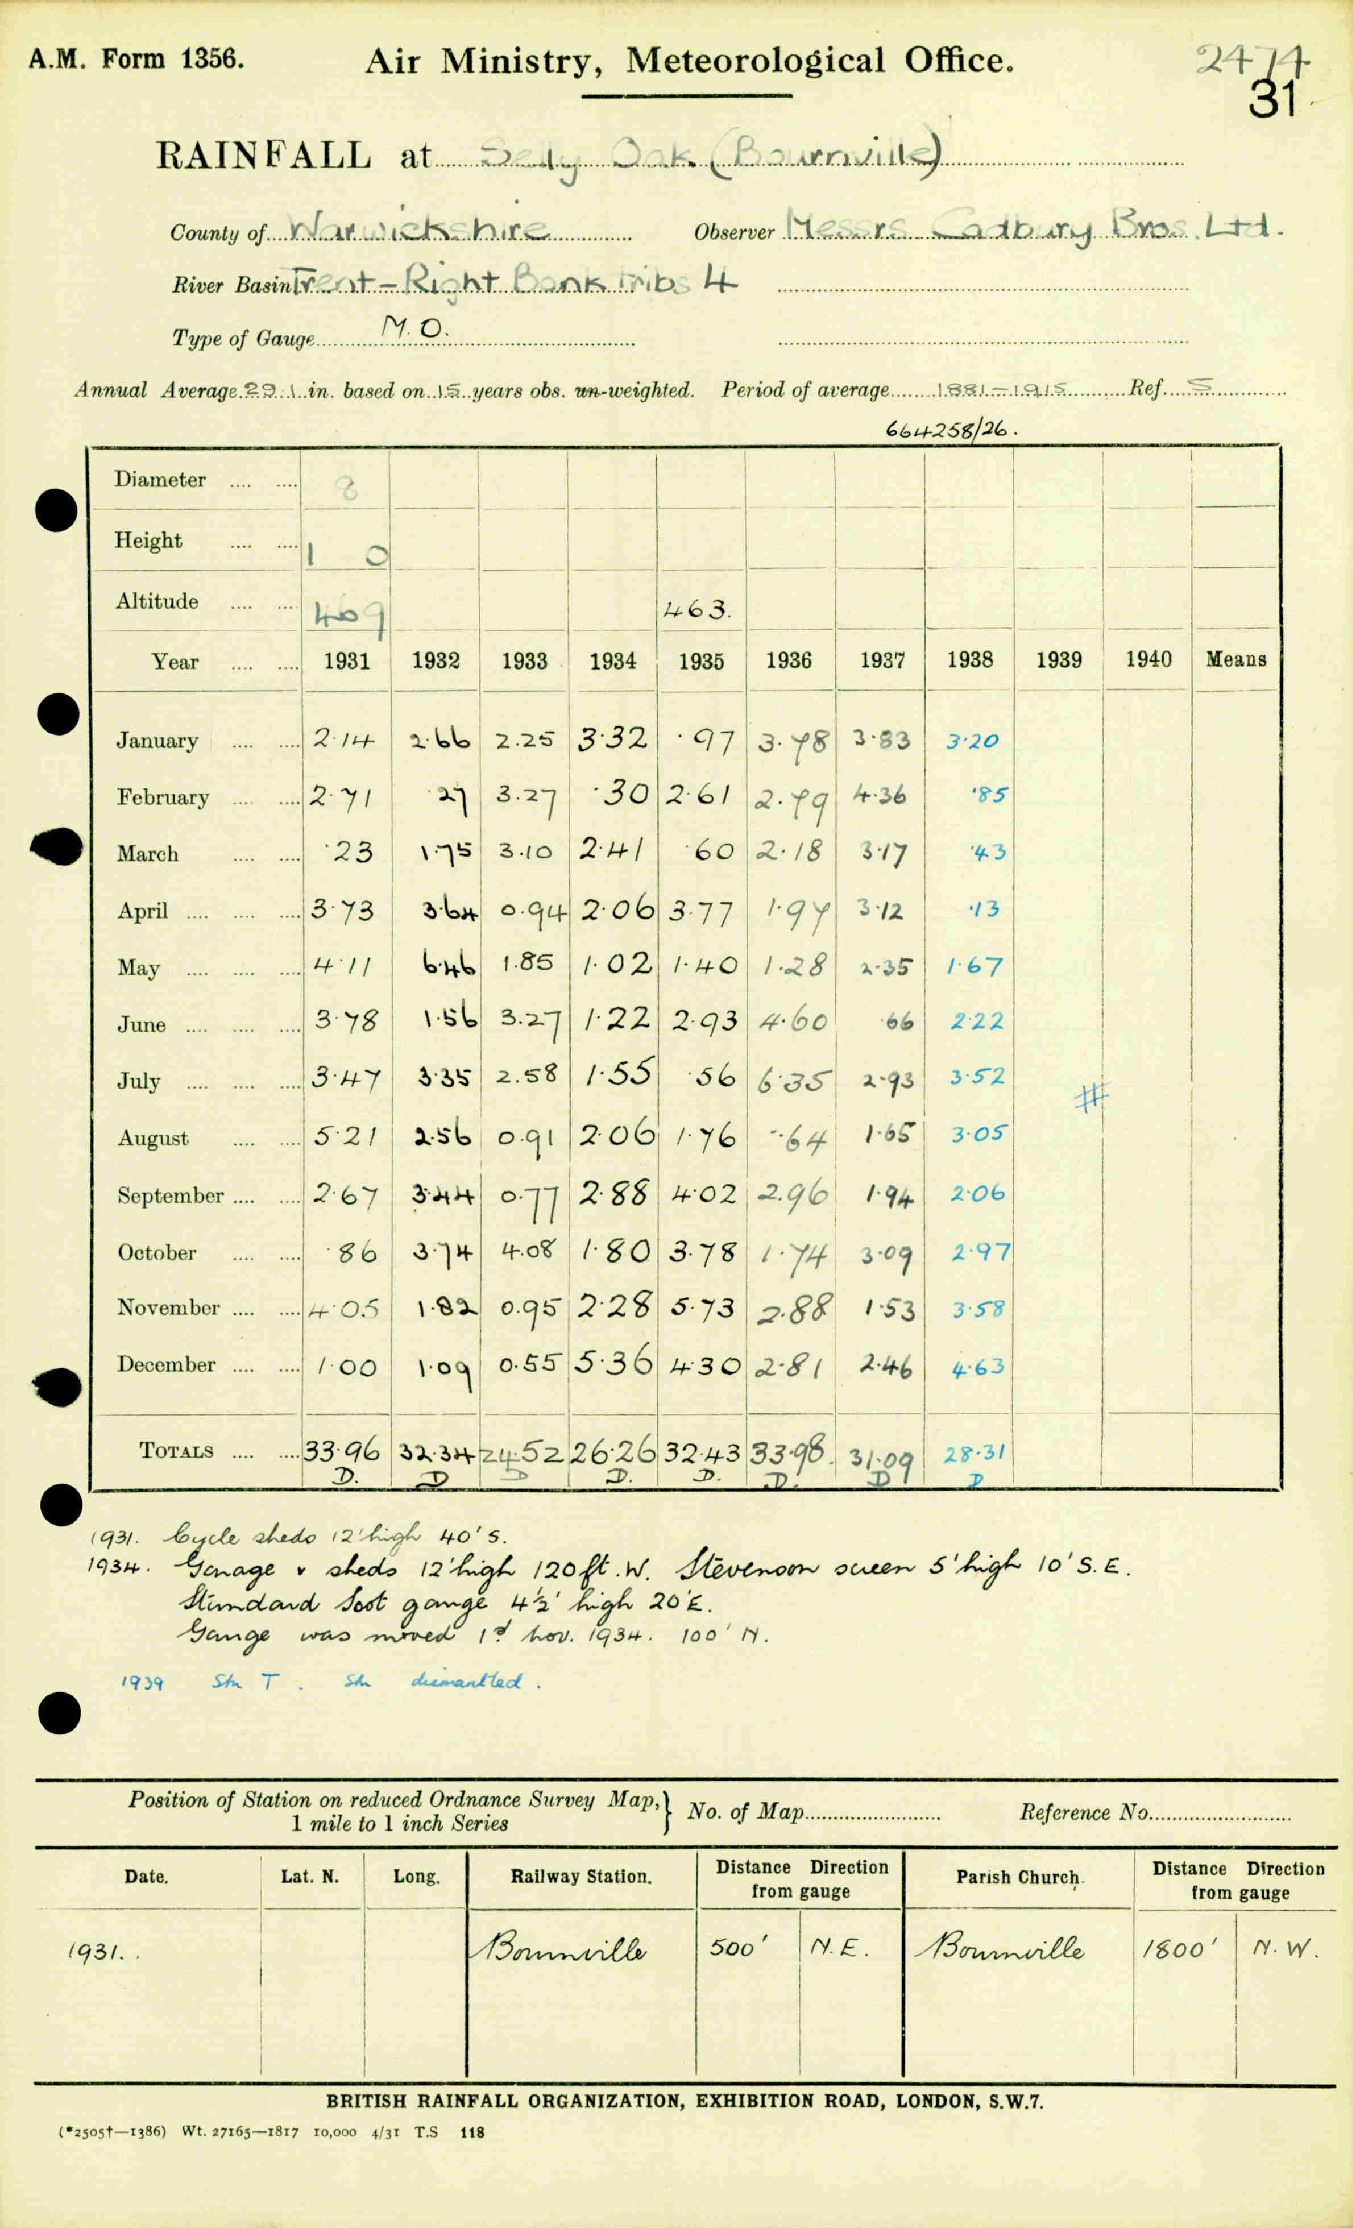 A.M. Form 1356. Air Ministry, Meteorological Office. 2474
31
RAINFALL at Selly Oak (Bournville)
County of Warwickshire Observer Messrs Cadbury Bros. Ltd.
River Basin Trent - Right Bank Tribs 4
Type of Gauge M.O.
Annual Average 29.1 in. based on 15 years obs. un-weighted. Period of average 1881-1915 Ref. S
664258/26.
Diameter 8
Height 1 0
Altitude 469 463.
Year 1931 1932 1933 1934 1935 1936 1937 1938 1939 1940 Means
January 2.14 2.66 2.25 3.32 .97 3.78 3.83 3.20
February 2.71 .27 3.27 .30 2.61 2.79 4.36 .85
March .23 1.75 3.10 2.41 .60 2.18 3.17 .43
April 3.73 3.64 0.94 2.06 3.77 1.97 3.12 .13
May 4.11 6.46 1.85 1.02 1.40 1.28 2.35 1.67
June 3.78 1.56 3.27 1.22 2.93 4.60 .66 2.22
July 3.47 3.35 2.58 1.55 .56 6.35 2.93 3.52
August 5.21 2.56 0.91 2.06 1.76 .64 1.65 3.05
September 2.67 3.44 0.77 2.88 4.02 2.96 1.94 2.06
October .86 3.74 4.08 1.80 3.78 1.74 3.09 2.97
November 4.05 1.82 0.95 2.28 5.73 2.88 1.53 3.58
December 1.00 1.09 0.55 5.36 4.30 2.81 2.46 4.63
TOTALS 33.96 32.34 24.52 26.26 32.43 33.98 31.09 28.31
D. D D D. D. D. D D
1931. Cycle sheds 12' high 40' S.
1934. Garage & sheds 12' high 120 ft. W. Stevenson screen 5' high 10' S.E.
Standard Soot gauge 4½' high 20' E.
Gauge was moved 1st Nov. 1934. 100' N.
1939 Stn T. Stn dismantled.
Position of Station on reduced Ordnance Survey Map, } No. of Map Reference No.
1 mile to 1 inch Series
Date. Lat. N. Long. Railway Station. Distance Direction from gauge Parish Church. Distance Direction from gauge
1931. Bournville 500' N.E. Bournville 1800' N.W.
BRITISH RAINFALL ORGANIZATION, EXHIBITION ROAD, LONDON, S.W.7.
(*2505†—1386) Wt. 27165—1817 10,000 4/31 T.S 118